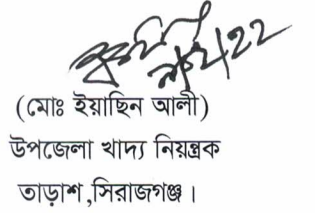 (মোঃ ইয়াছিন আলী)
উপজেলা খাদ্য নিয়ন্ত্রক
তাড়াশ,সিরাজগঞ্জ।